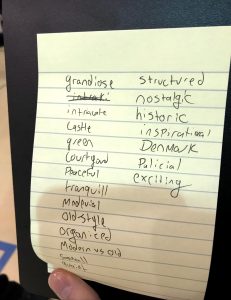 grandiose
intracate
Castle
green
Courtyard
Peaceful
tranquill
Medevil
Old-style
organiced
Modern vs old
structured
nostalgic
historic
inspirational
Denmark
Palicial
exciting